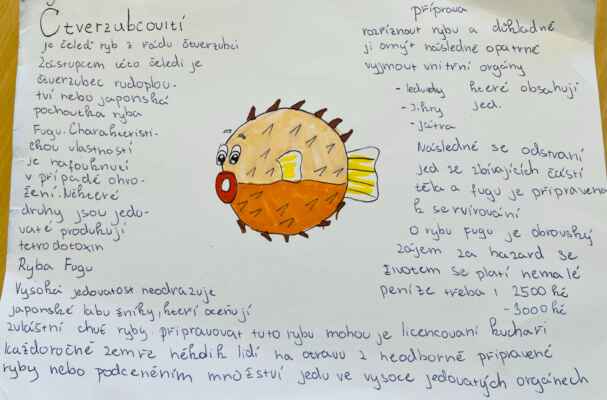 Čtverzubcovití
je čeleď ryb z řádu čtverzubci
Zástupcem této čeledi je
čtverzubec rudoplou-
tví nebo japonská
pochoutka ryba
Fugu. Charakteristi-
ckou vlastností
je nafouknutí
v případě ohro-
žení. Některé
druhy jsou jedo-
vaté produkují
tetrodotoxin
Ryba Fugu
Vysoká jedovatost neodrazuje
japonské labužníky, kteří oceňují
zvláštní chuť ryby připravovat tuto rybu mohou je licencovaní kuchaři
každoročně zemře několik lidí na otravu z neodborně připravené
ryby nebo podceněním množství jedu ve vysoce jedovatých orgánech
příprava
rozříznout rybu a důkladně
ji omýt následně opatrně
vyjmout vnitřní orgány
- ledvidy které obsahují
- Jikry jed.
- játra
Následně se odstraní
jed se zbívajících částí
těla a fugu je připraveno
k servírování
O rybu fugu je obrovský
zájem za hazard se
životem se platí nemalé
peníze třeba i 2500 kč
- 3000 kč